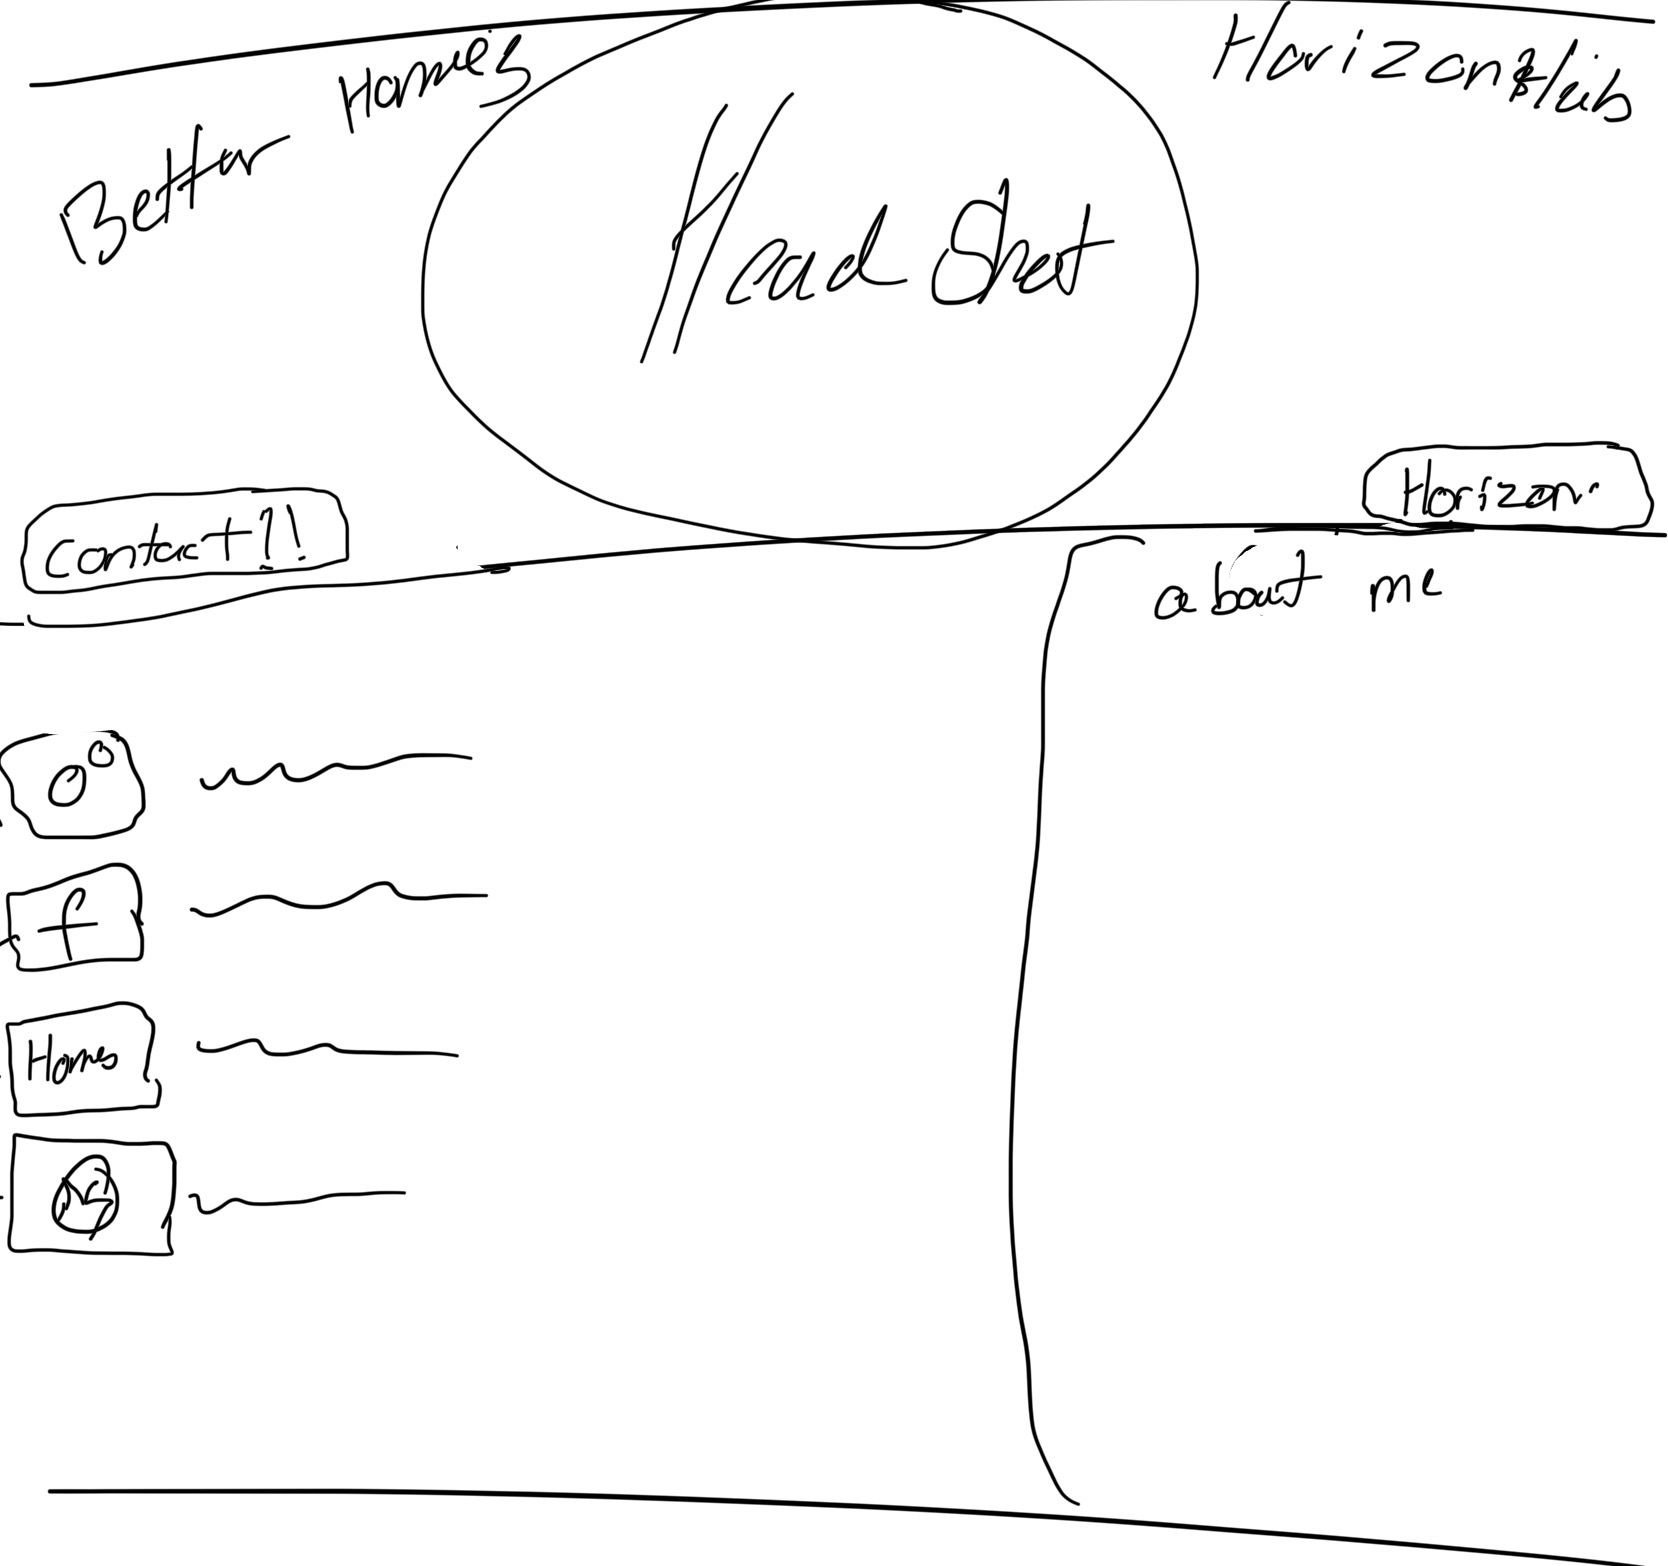 Better Homes
Head Shot
Contact!!
Horizon
about me
f
Homes